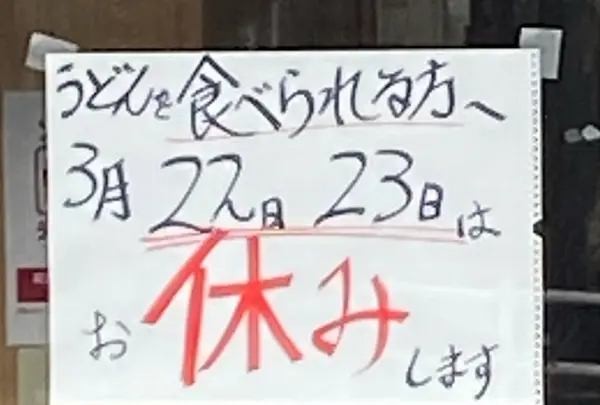 うどんを食べられる方へ
3月22日 23日は
お休みします